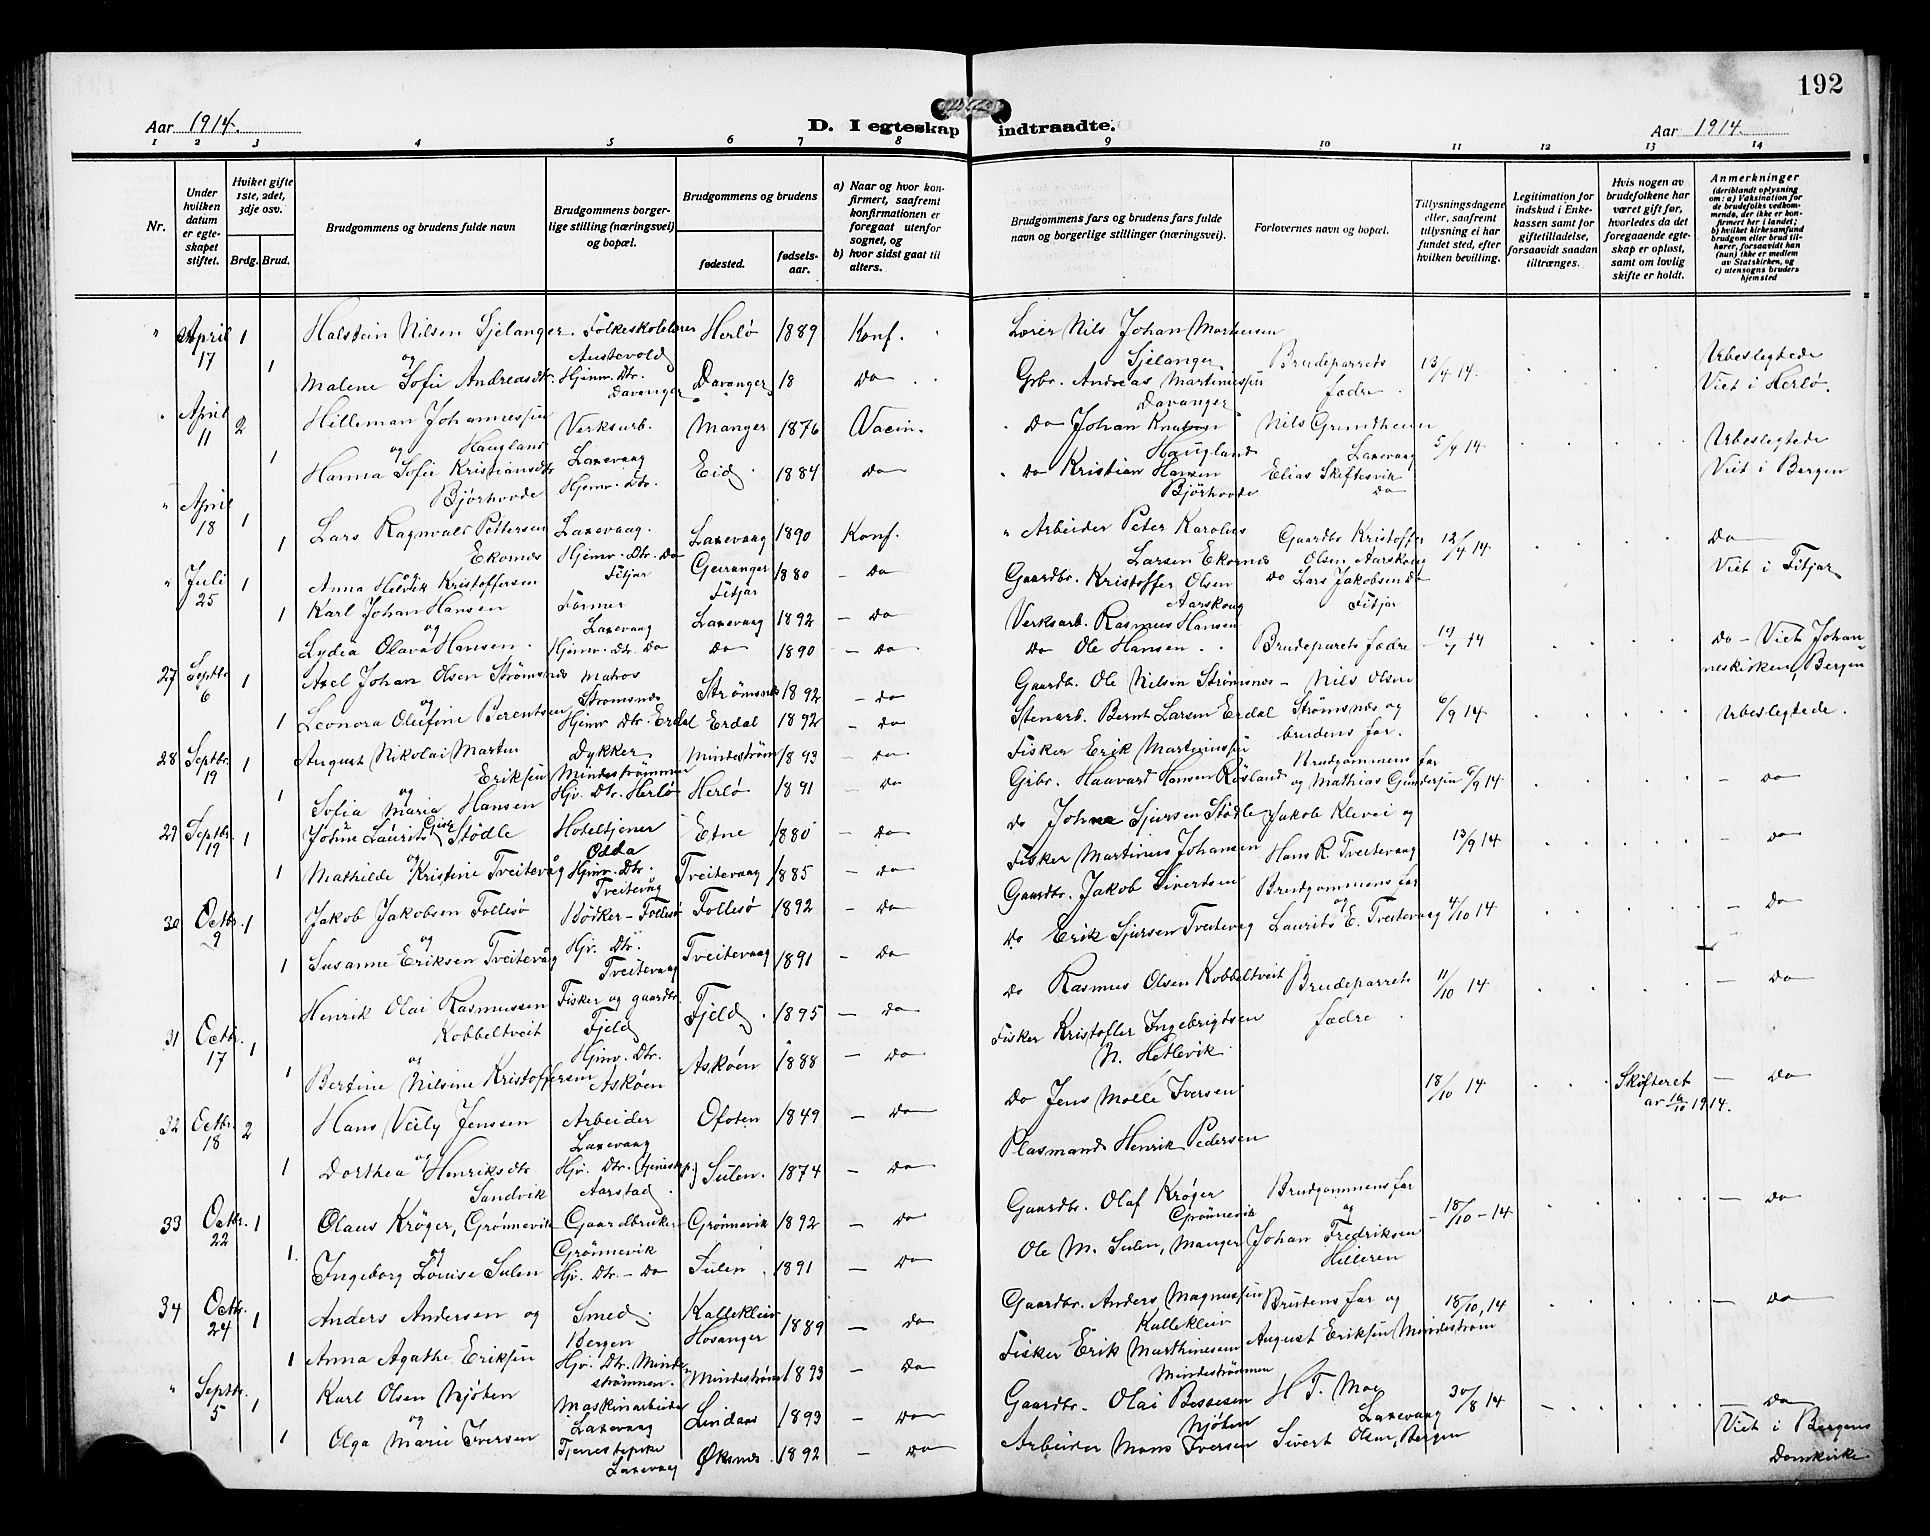 192
Aar 1914.
D. I egteskap indtraadte.
Aar 1914.
1 2 3 4 5 6 7 8 9 10 11 12 13 14
Nr.
Under hvilken datum er egteskapet stiftet.
Hviket gifte 1ste, 2det, 3dje osv.
Brdg. Brud.
Brudgommens og brudens fulde navn
Brudgommens borgerlige stilling (næringsvei) og bopæl.
Brudgommens og brudens
fødested.
fødselsaar.
a) Naar og hvor konfirmert, saafremt konfirmationen er foregaat utenfor sognet, og
b) hvor sidst gaat til alters.
Brudgommens fars og brudens fars fulde navn og borgerlige stillinger (næringsvei).
Forlovernes navn og bopæl.
Tillysningsdagene eller, saafremt tillysning ei har fundet sted, efter hvilken bevilling.
Legitimation for indskud i Enkekassen samt for giftetilladelse, forsaavidt saadan tiltrænges.
Hvis nogen av brudefolkene har været gift før, hvorledes da det foregaaende egteskap er opløst, samt om lovlig skifte er holdt.
Anmerkninger
(deriblandt oplysning om: a) Vaksination for de brudefolks vedkommende, der ikke er konfirmert her i landet; b) hvilket kirkesamfund brudgom eller brud tilhører, forsaavidt han (hun) ikke er medlem av Statskirken, og c) utensogns bruders hjemsted
" April 17 1 Halstein Nilsen Sjelanger Folkeskolelærer Austevold Herlø 1889 Konf. Lærer Nils Johan Martinsen Sjelanger
og
1 Malene Sofie Andreasdtr. Hjemv. Dtr. Davanger Davanger 18 Do Grbr. Andreas Martinussen Davanger Brudeparrets fædre 13/4 14. Ubeslegtede Viet i Herlø.
" April 11 2 Hilleman Johannessen Haugland Verksarb. Laxevaag Manger 1876 Vacin. Do Johan Haugland Nils Grundheim Laxevaag 5/4 14
og
1 Hanna Sofie Kristiansdtr Bjørhovde Hjemv. Dtr. Eid 1884 do Do Kristian Hansen Bjørhovde Elias Skiftesvik do Ubeslegtede Viet i Bergen
" April 18 1 Lars Ragnvald Pettersen Ekornes Laxevaag. Laxevaag 1890 Konf. Arbeider Peter Karolus Larsen Ekornes Gaardbr Kristoffer Olsen Aarskoug 12/4 14 do
1 Anna Helvik Kristoffersen Hjemv. Dtr. Do Fitjar Geiranger Fitjar 1880 Do Gaardbr. Kristoffer Olsen Aarskoug Do Lars Jakobsen Do Fitjar Viet i Fitjar
" Juli 25 1 Karl Johan Hansen Former Laxevaag Laxevaag 1892 do Verksarb. Rasmus Hansen
og
1 Lydia Olava Hansen. Hjemv. Dtr. Do do 1890 do Do Ole Hansen. Brudeparets fædre 19/7 14 do – Viet Johanneskirken, Bergen
27 Septbr. 6 1 Axel Johan Olsen Strømsnes Matros Strømsnes Strømsnes 1892 do Gaardb. Ole Nilsen Strømsnes Nils Olsen
og
1 Leonora Olufine Berentsen Hjemv Dtr. Erdal Erdal 1892 do Stenarb. Bernt Larsen Erdal Strømsnes og brudens far. 6/9 14 Ubeslegtede.
28 Septbr. 19 1 August Nikolai Martin Eriksen Dykker Mindestrømmen Mindestrøm 1893 do Fisker Erik Martinussen Brudgommens far
og
1 Sofia Maria Hansen Hjv. Dtr. Herlø Herlø 1891 do Grbr. Haavard Hansen Røsland og Mathias Gundersen 6/9 14 do
29 Septbr. 19 1 Johan Laurits Stødle Hoteltjener Odda Etne 1880 do do Johan Sjursen Stødle Jakob Klevei og
og
1 Mathilde Kristine Treitevåg Hjemv. Dtr. Treitevåg Treitevaag 1885 do Fisker Martinus Johansen Hans R. Treitevaag 13/9 14 do
30 Octbr. 9 1 Jakob Jakobsen Follesø Bødker – Follesø Follesø 1892 do Gaardbr. Jakob Sivertsen Brudgommens far
og
1 Susanne Eriksen Treitevåg Hjv. Dtr. Treitevaag Treitevaag 1891 do Do Erik Sjursen Treitevag og Laurits E. Treitevaag 4/10 14 do
31 Octbr. 17 1 Henrik Olai Rasmussen Kobbeltveit Fisker og gaardbr. Fjeld Fjeld 1895 do Do Rasmus Olsen Kobbeltveit Brudeparrets fædre 11/10 14 do
og
1 Bertine Nilsine Kristoffersen Hjemv. Dtr. Askøen Askøen 1888 do Fisker Kristoffer Ingebrigtsen N. Hetlevik
32 Octbr. 18 2 Hans Veily Jenssen Arbeider Laxevaag Ofoten 1849 do Do Jens Molle Iversen 18/10 14 Skifteret av 16/10 1914. do
og
1 Dorthea Henriksdtr Sandvik Hjv. Dtr. Aarstad Sulen. 1874 do Plasmand Henrik Pedersen
33 Octbr. 22 1 Olaus Krøger, Grønnevik Gaardbruker Grønnevik Grønnevik 1892 do Gaardbr. Olaf Krøger Grønnevik Brudgommens far 18/10 – 14 do
og
1. Ingeborg Louise Sulen Hjv. Dtr. – Do Sulen 1891 do Ole M. Sulen, Manger og Johan Fredriksen Hilleren
34 Octbr. 24 1 Anders Andersen og Smed. Bergen Kalleklein Hosanger 1889 do Gaardbr. Anders Magnussen Kalleklein Brudens far og 18/10, 14 do
1 Anna Agathe Eriksen Hjv. Dtr. Mindestrømmen. Mindestrøm 1893 do Fisker Erik Marthinesen Mindestrømmen August Eriksen Mindestrøm
" Septbr. 5 1 Karl Olsen Njøten Maskinarbeider Laxevaag Lindaas 1893 do Gaardbr. Olai Bessesen Njøten H T. Moe Laxevaag 30/8 14 do
og
1 Olga Marie Iversen Tjenestepike Laxevaag Øksnes 1892 do Arbeider Mons Iversen Sivert Olsen, Bergen Viet i Bergens Domkirke